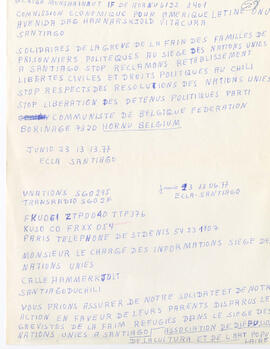 COMMISSION ECONOMIQUE POUR AMERIQUE LATINE ONU
AVENIDA DAG HAMMARSKJOLD VITACURA
SANTIAGO
SOLIDAIRES DE LA GREVE DE LA FAIM DES FAMILLES DE
PRISONNIERS POLITIQUES AU SIEGE DES NATIONS UNIES
A SANTIAGO STOP RECLAMONS RETABLISSEMENT
LIBERTES CIVILES ET DROITS POLITIQUES AU CHILI
STOP RESPECTS DES RESOLUTIONS DES NATIONS UNIES
STOP LIBERATION DES DETENUS POLITIQUES PARTI
COMMUNISTE DE BELGIQUE FEDERATION
BORINAGE 7320 HORNU BELGIUM
JUNIO 23 13.13.77
ECLA SANTIAGO
UNATIONS SGO295
TRANSRADIO SGO2
JUNIO 23
ECLA-SANTIAGO
PARIS TELEPHONE DE ST DENIS
MONSIEUR LE CHARGE DES INFORMATIONS SIEGE DES
NATIONS UNIES
SANTIAGODUCHILI
VOUS PRIONS ASSURER DE NOTRE SOLIDATE ET DE NOTRE
ACTION EN FAVEUR DE LEURS PARENTS DISPARUS LES
GREVISTES DE LA FAIM REFUGIES DANS LE SIEGE DES
NATIONS UNIES A SANTIAGO ASSOCIATION DE
DE LA CULTURE ET DE L'ART